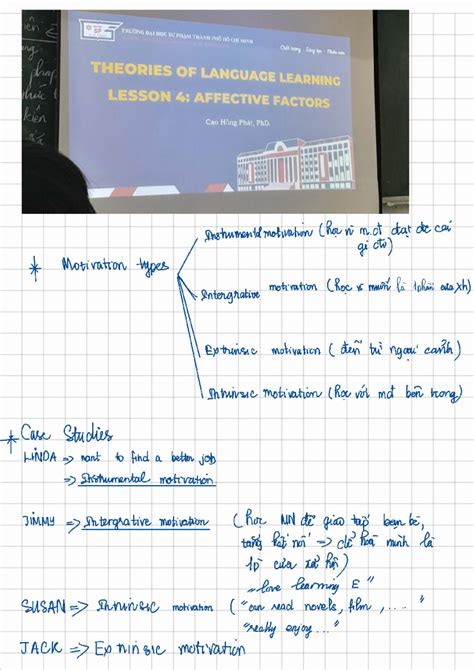 TRƯỜNG ĐẠI HỌC SƯ PHẠM THÀNH PHỐ HỒ CHÍ MINH
THEORIES OF LANGUAGE LEARNING
LESSON 4: AFFECTIVE FACTORS
Cao Hồng Phát, PhD.
Instrumental motivation (học vì m.đ đạt đc cái
gì đó)
* Motivation types
Intergrative motivation (học vì muốn là 1 phần của xh)
Extrinsic motivation (đến từ ngoại cảnh)
Intrinsic motivation (học với mđ bên trong)
* Case Studies
LINDA => want to find a better job
=> Instrumental motivation
JIMMY => Intergrative motivation (học NN để giao tiếp bạn bè,
tăng kết nối => để mình là
1p của xã hội)
"love learning E"
SUSAN => Intrinsic motivation ("can read novels, film, ...."
"really enjoy..."
JACK => Extrinsic motivation